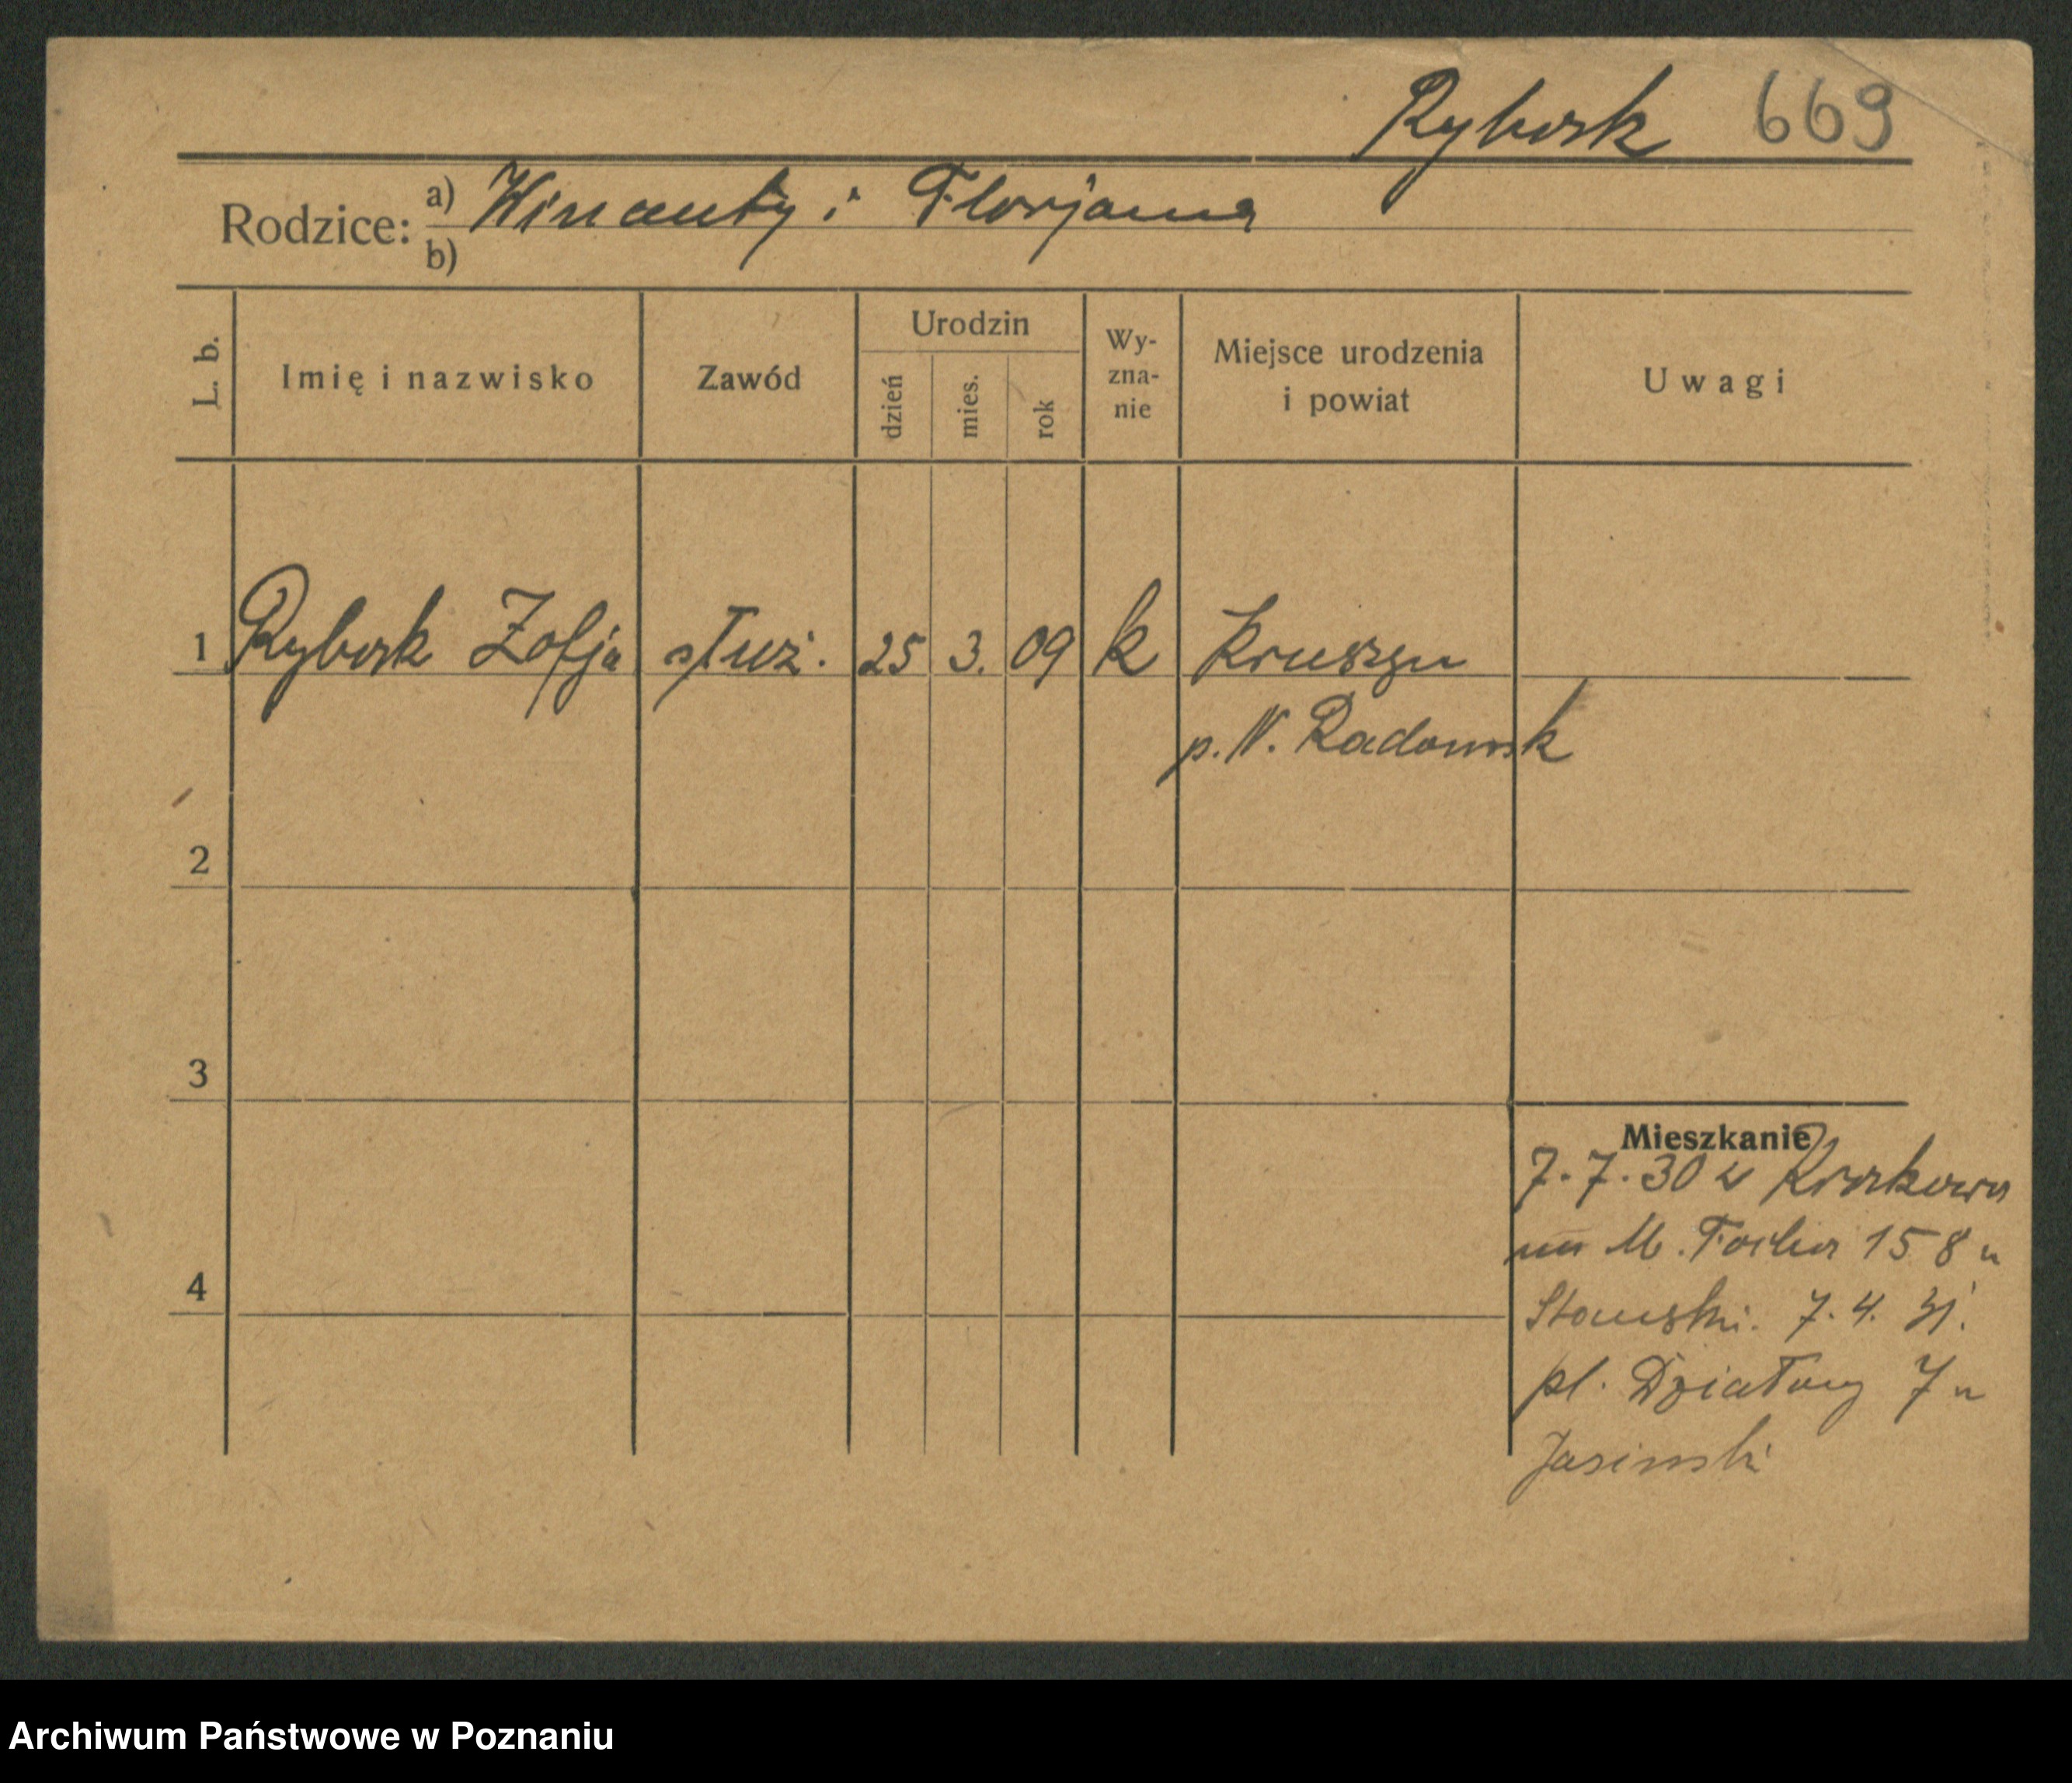 Rybork 669
Rodzice: a) Winanty i Florjana
b)
L. b. Imię i nazwisko Zawód Urodzin dzień mies. rok Wy-zna-nie Miejsce urodzenia i powiat Uwagi
1 Rybork Zofja służ. 25 3. 09 k
p. N. Radomsk
2
3
4
Mieszkanie
7.7.30 z Krakowa
M. Focha 158 u
7.4.31.
pl. Działowy 7 u
Jasinski
Archiwum Państwowe w Poznaniu